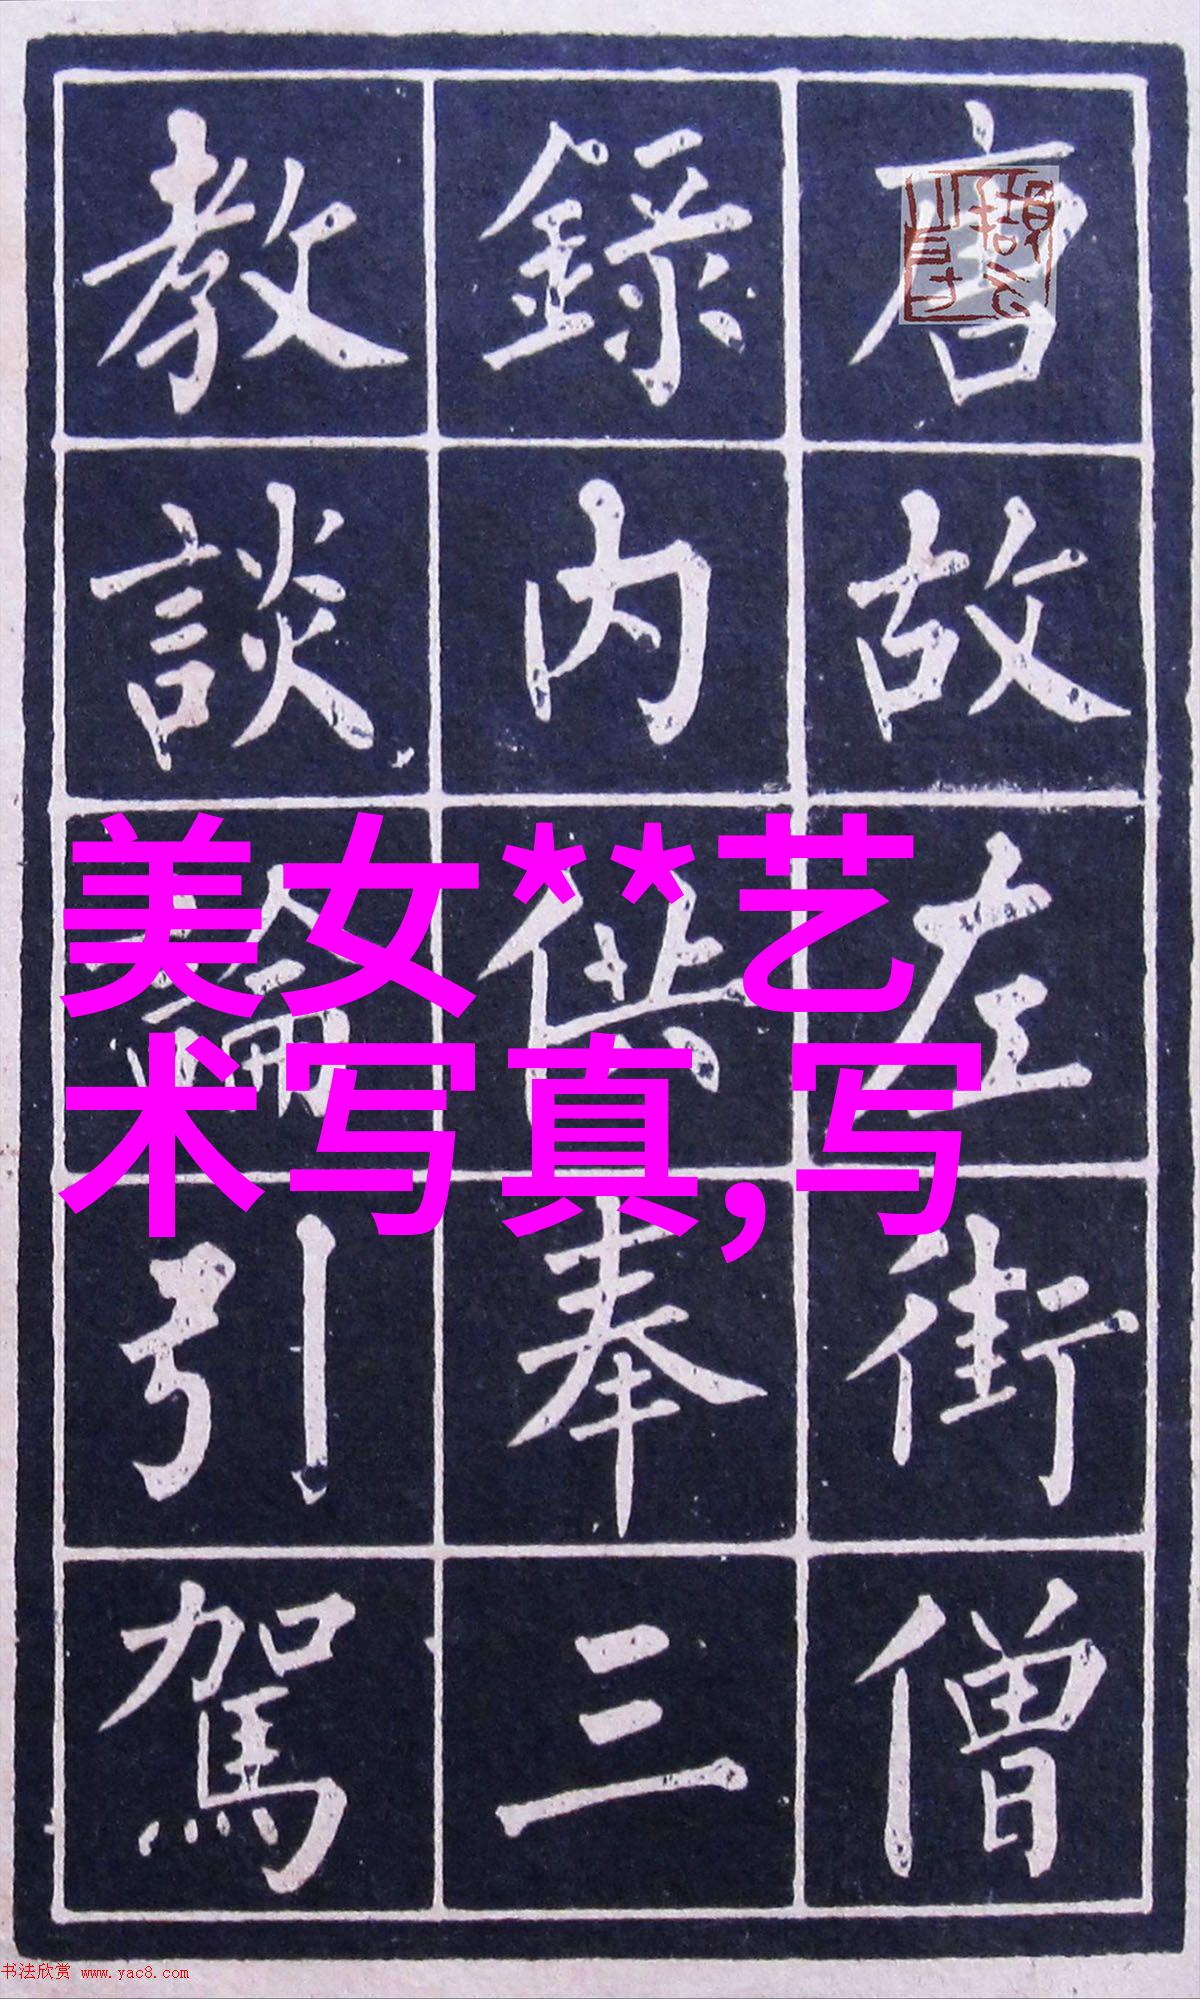 唐故左街僧
錄內供奉三
教談論引駕
美女**艺
术写真,写
书法欣赏 www.yac8.com